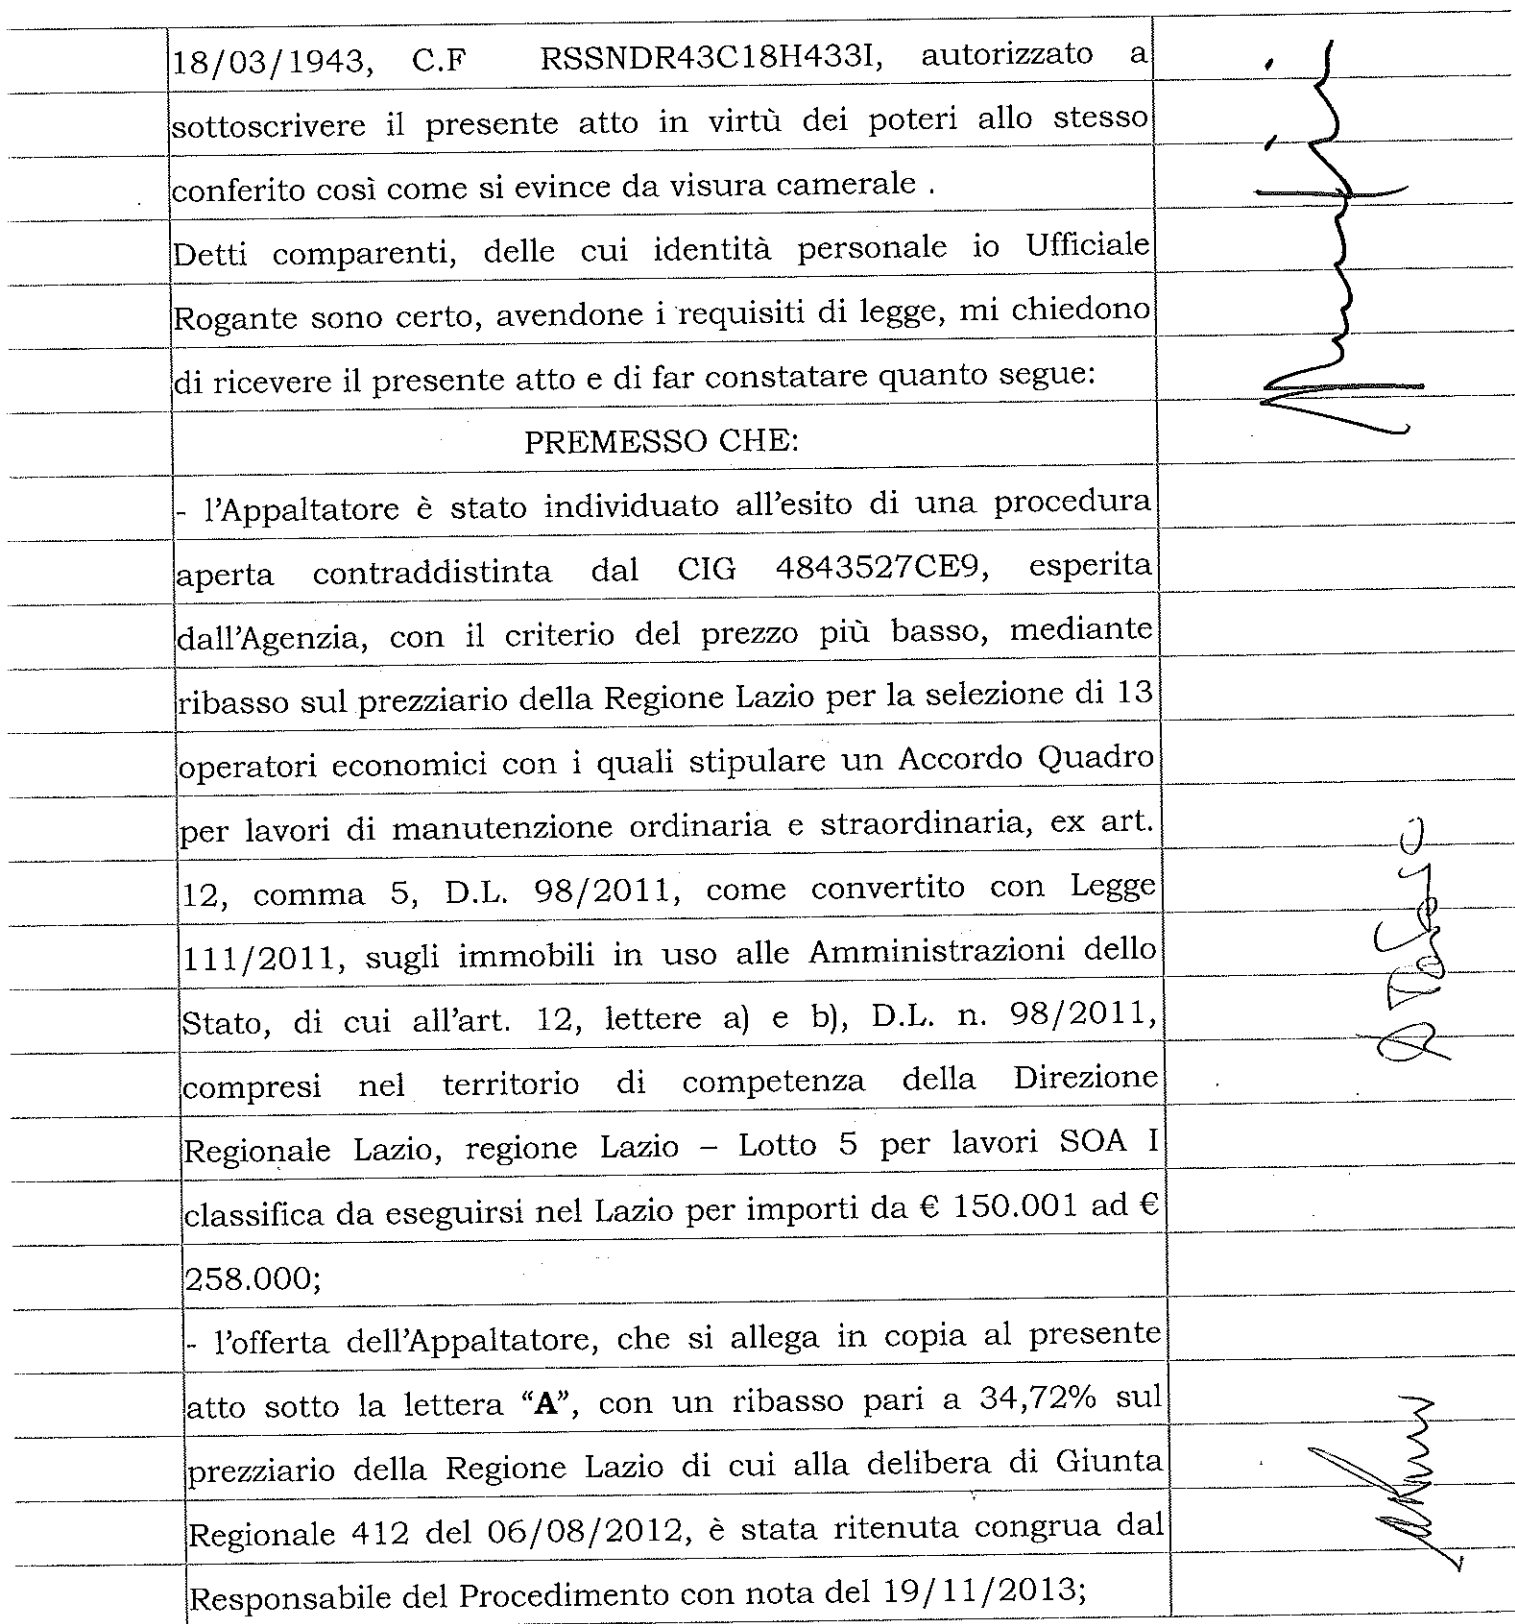 18/03/1943, C.F RSSNDR43C18H433I, autorizzato a
sottoscrivere il presente atto in virtù dei poteri allo stesso
conferito così come si evince da visura camerale .
Detti comparenti, delle cui identità personale io Ufficiale
Rogante sono certo, avendone i requisiti di legge, mi chiedono
di ricevere il presente atto e di far constatare quanto segue:
PREMESSO CHE:
- l'Appaltatore è stato individuato all'esito di una procedura
aperta contraddistinta dal CIG 4843527CE9, esperita
dall'Agenzia, con il criterio del prezzo più basso, mediante
ribasso sul prezziario della Regione Lazio per la selezione di 13
operatori economici con i quali stipulare un Accordo Quadro
per lavori di manutenzione ordinaria e straordinaria, ex art.
12, comma 5, D.L. 98/2011, come convertito con Legge
111/2011, sugli immobili in uso alle Amministrazioni dello
Stato, di cui all'art. 12, lettere a) e b), D.L. n. 98/2011,
compresi nel territorio di competenza della Direzione
Regionale Lazio, regione Lazio – Lotto 5 per lavori SOA I
classifica da eseguirsi nel Lazio per importi da € 150.001 ad €
258.000;
- l'offerta dell'Appaltatore, che si allega in copia al presente
atto sotto la lettera “A”, con un ribasso pari a 34,72% sul
prezziario della Regione Lazio di cui alla delibera di Giunta
Regionale 412 del 06/08/2012, è stata ritenuta congrua dal
Responsabile del Procedimento con nota del 19/11/2013;